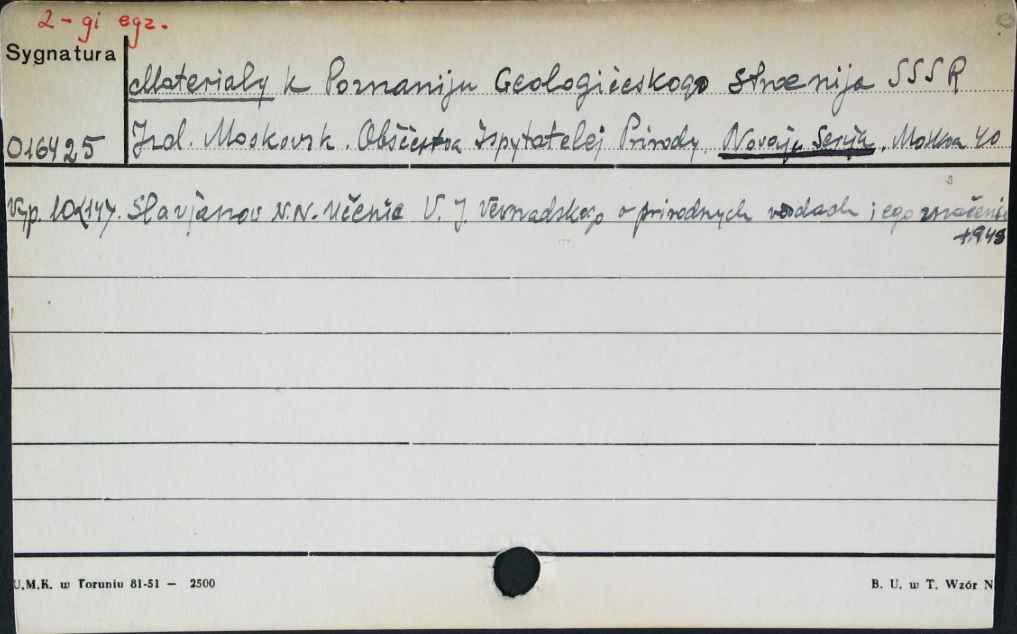 2-gi egz.
Sygnatura
Materialy k Poznaniju Geologičeskogo Stroenija SSSR
016425 Izd. Moskovsk. Obščestva Ispytatelej Prirody. Novaja Serija. Moskva 40
Vyp. 10(14). Slavjanov N.N. Učenie V. J. Vernadskogo o prirodnych vodach i ego značenie
1948
U.M.K. w Toruniu 81-51 — 2500
B. U. w T. Wzór N